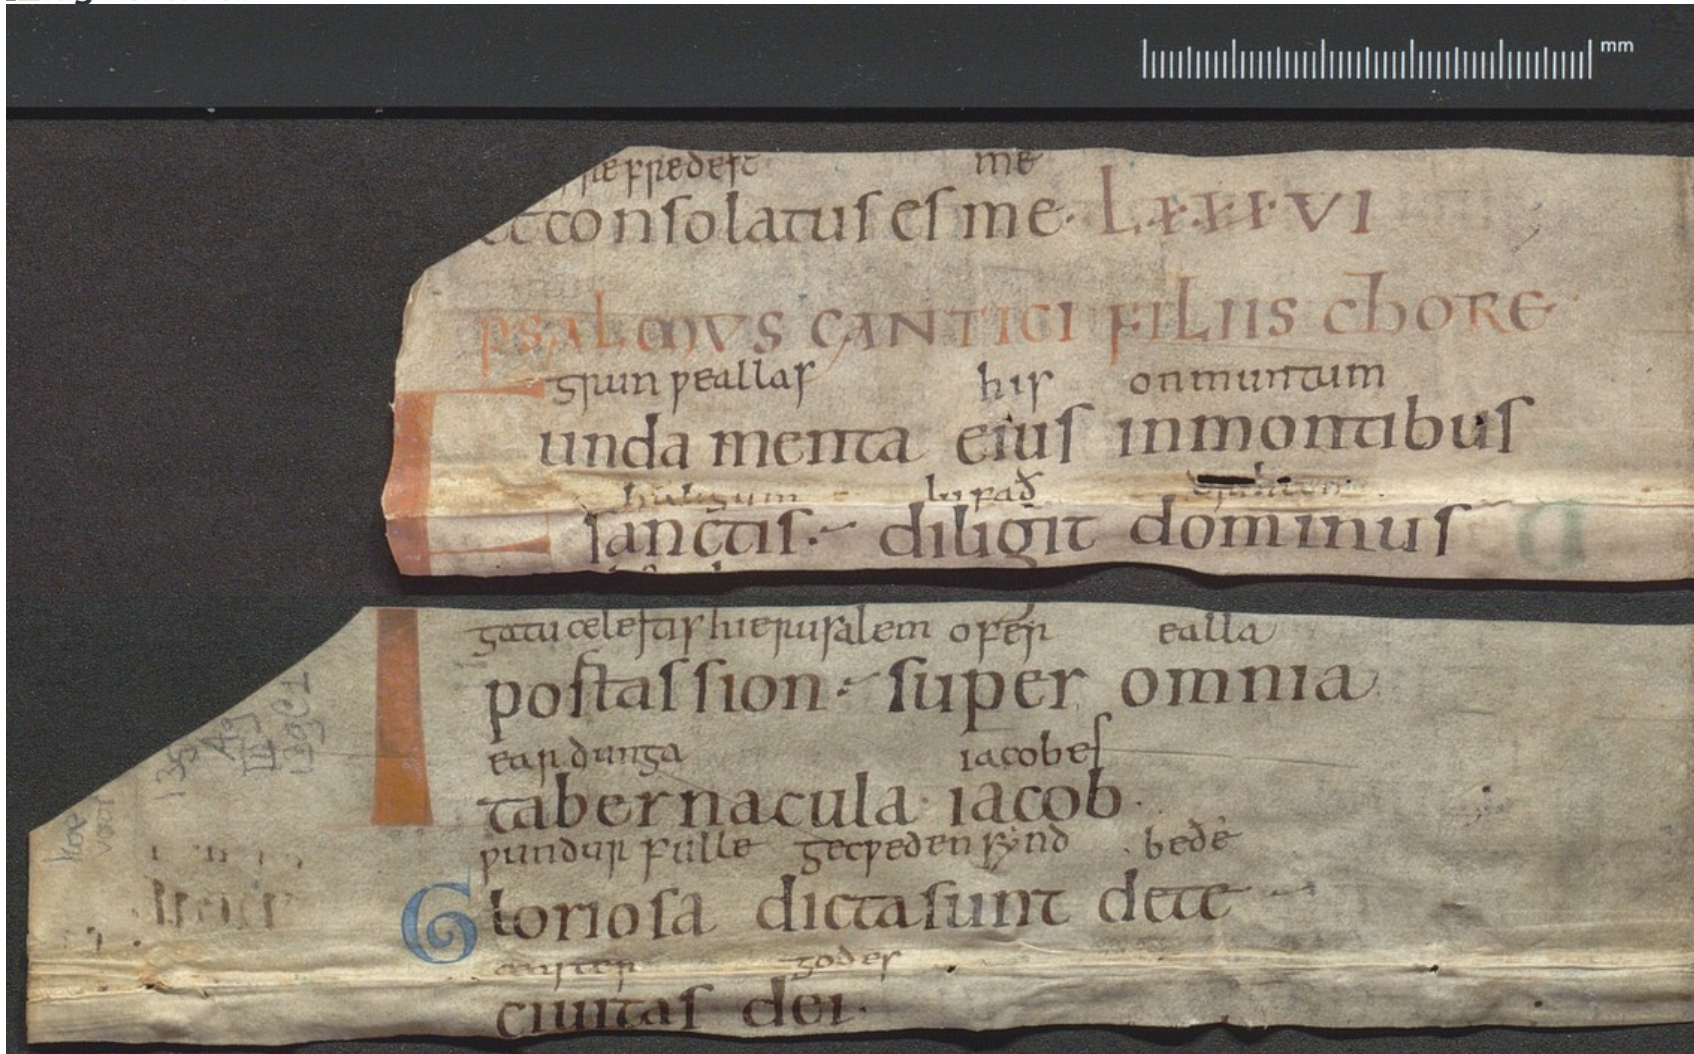 mm
frefredest me
et consolatus es me. LXXXVI
PSALMVS CANTICI FILIIS CHORE
grunƿeallas his onmuntum
unda menta eius inmontibus
halgum lufað drihten
sanctis. diligit dominus
gatu celestis hierusalem ofer ealla
portas sion. super omnia
eardunga iacobes
tabernacula. iacob.
ƿundur fulle gecƿeden synd. bede
Gloriosa dicta sunt dete
cester godes
ciuitas dei.